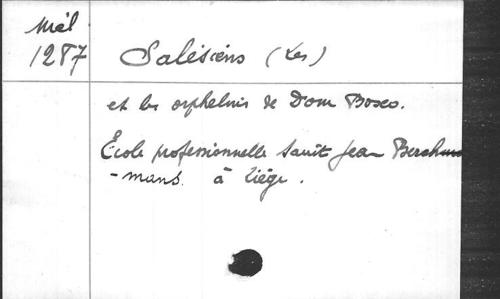 Mél
1287
Salésiens (Les)
et les orphelins de Dom Bosco.
École professionnelle Saint Jean Berchm
-mans. à Liège.